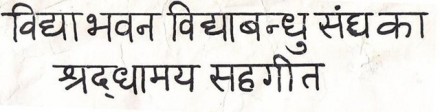 विद्या भवन विद्याबन्धु संघ का
श्रद्धामय सहगीत